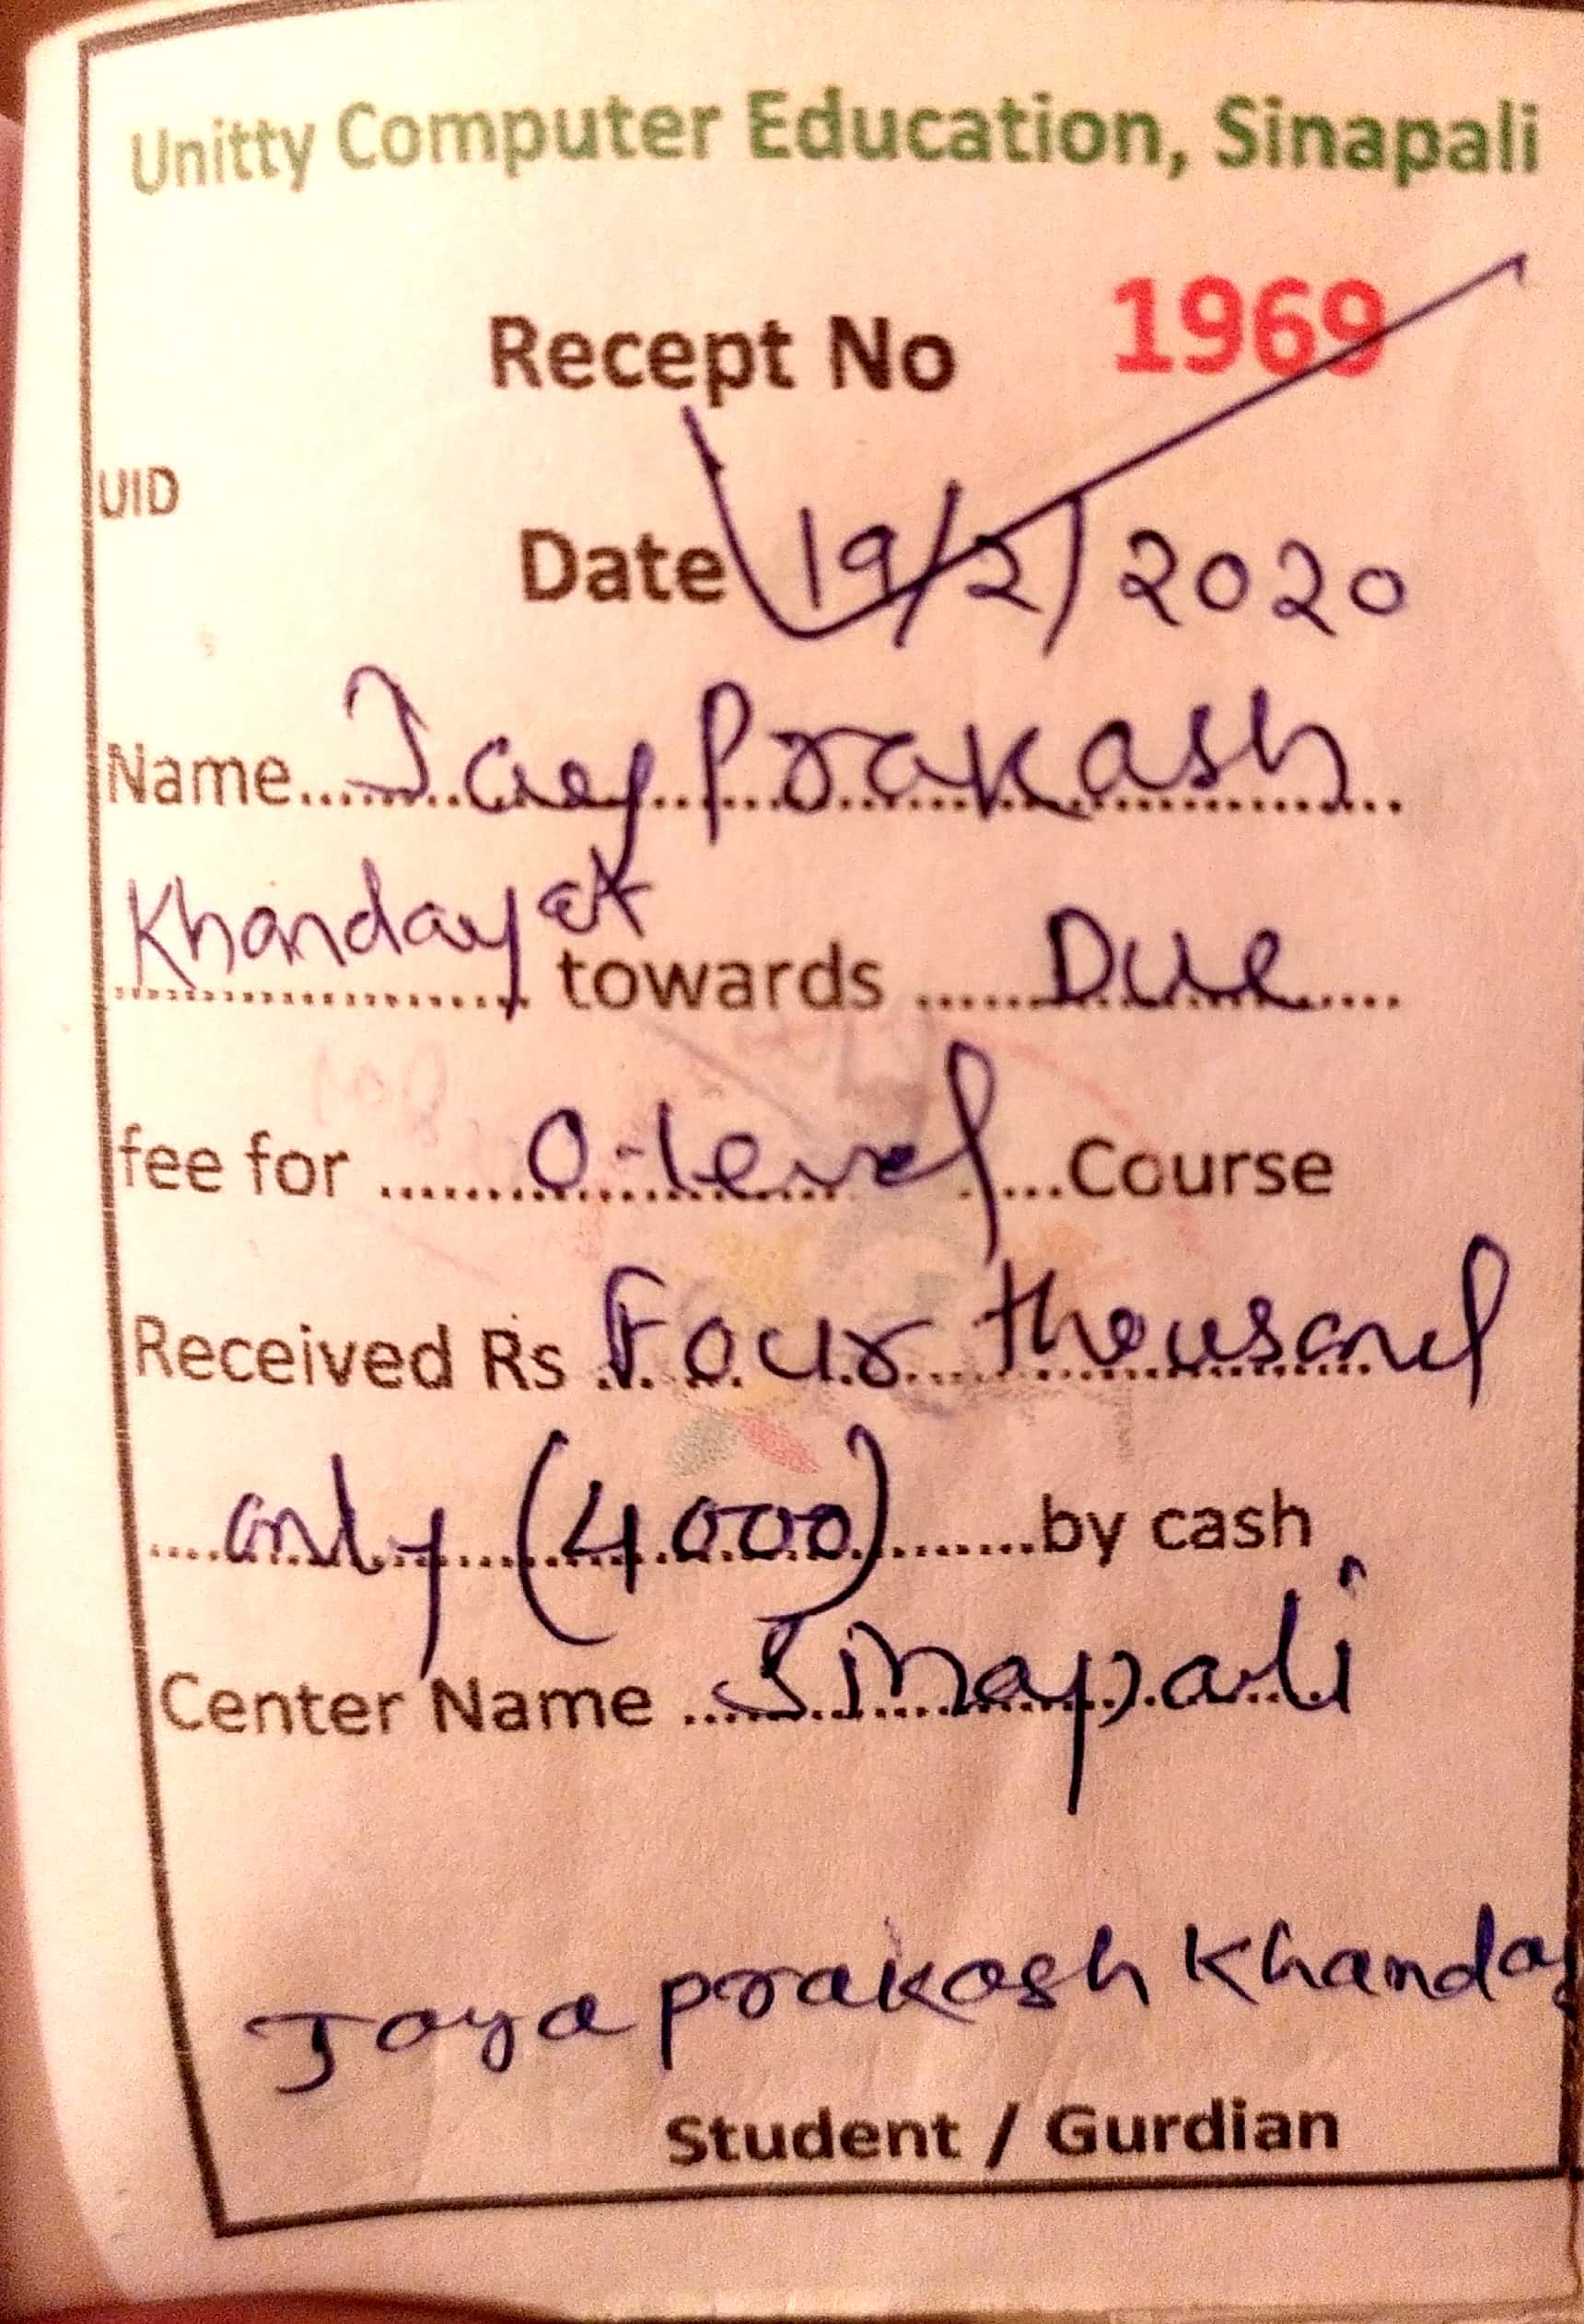 Unitty Computer Education, Sinapali
Recept No 1969
UID
Date 19/2/2020
Name......Jay Prakash......
Khandayat towards ......Due......
fee for ......O-level......Course
Received Rs Four thousand
....only (4000)........by cash
Center Name ....Sinapali
Jayaprakash Khanday
Student / Gurdian